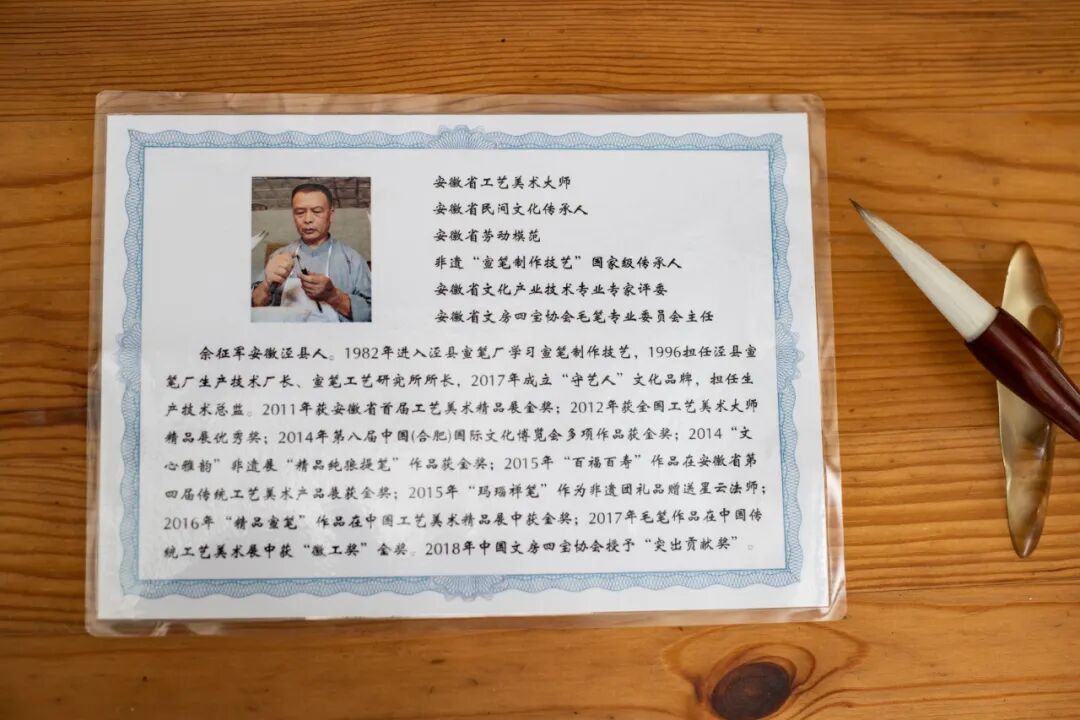 安徽省工艺美术大师
安徽省民间文化传承人
安徽省劳动模范
非遗“宣笔制作技艺”国家级传承人
安徽省文化产业技术专业专家评委
安徽省文房四宝协会毛笔专业委员会主任
佘征军安徽泾县人。1982年进入泾县宣笔厂学习宣笔制作技艺，1996担任泾县宣
笔厂生产技术厂长、宣笔工艺研究所所长，2017年成立“守艺人”文化品牌，担任生
产技术总监。2011年获安徽省首届工艺美术精品展金奖；2012年获全国工艺美术大师
精品展优秀奖；2014年第八届中国(合肥)国际文化博览会多项作品获金奖；2014“文
心雅韵”非遗展“精品纯狼提笔”作品获金奖；2015年“百福百寿”作品在安徽省第
四届传统工艺美术产品展获金奖；2015年“玛瑙禅笔”作为非遗团礼品赠送星云法师；
2016年“精品宣笔”作品在中国工艺美术精品展中获金奖；2017年毛笔作品在中国传
统工艺美术展中获“徽工奖”金奖。2018年中国文房四宝协会授予“突出贡献奖”。